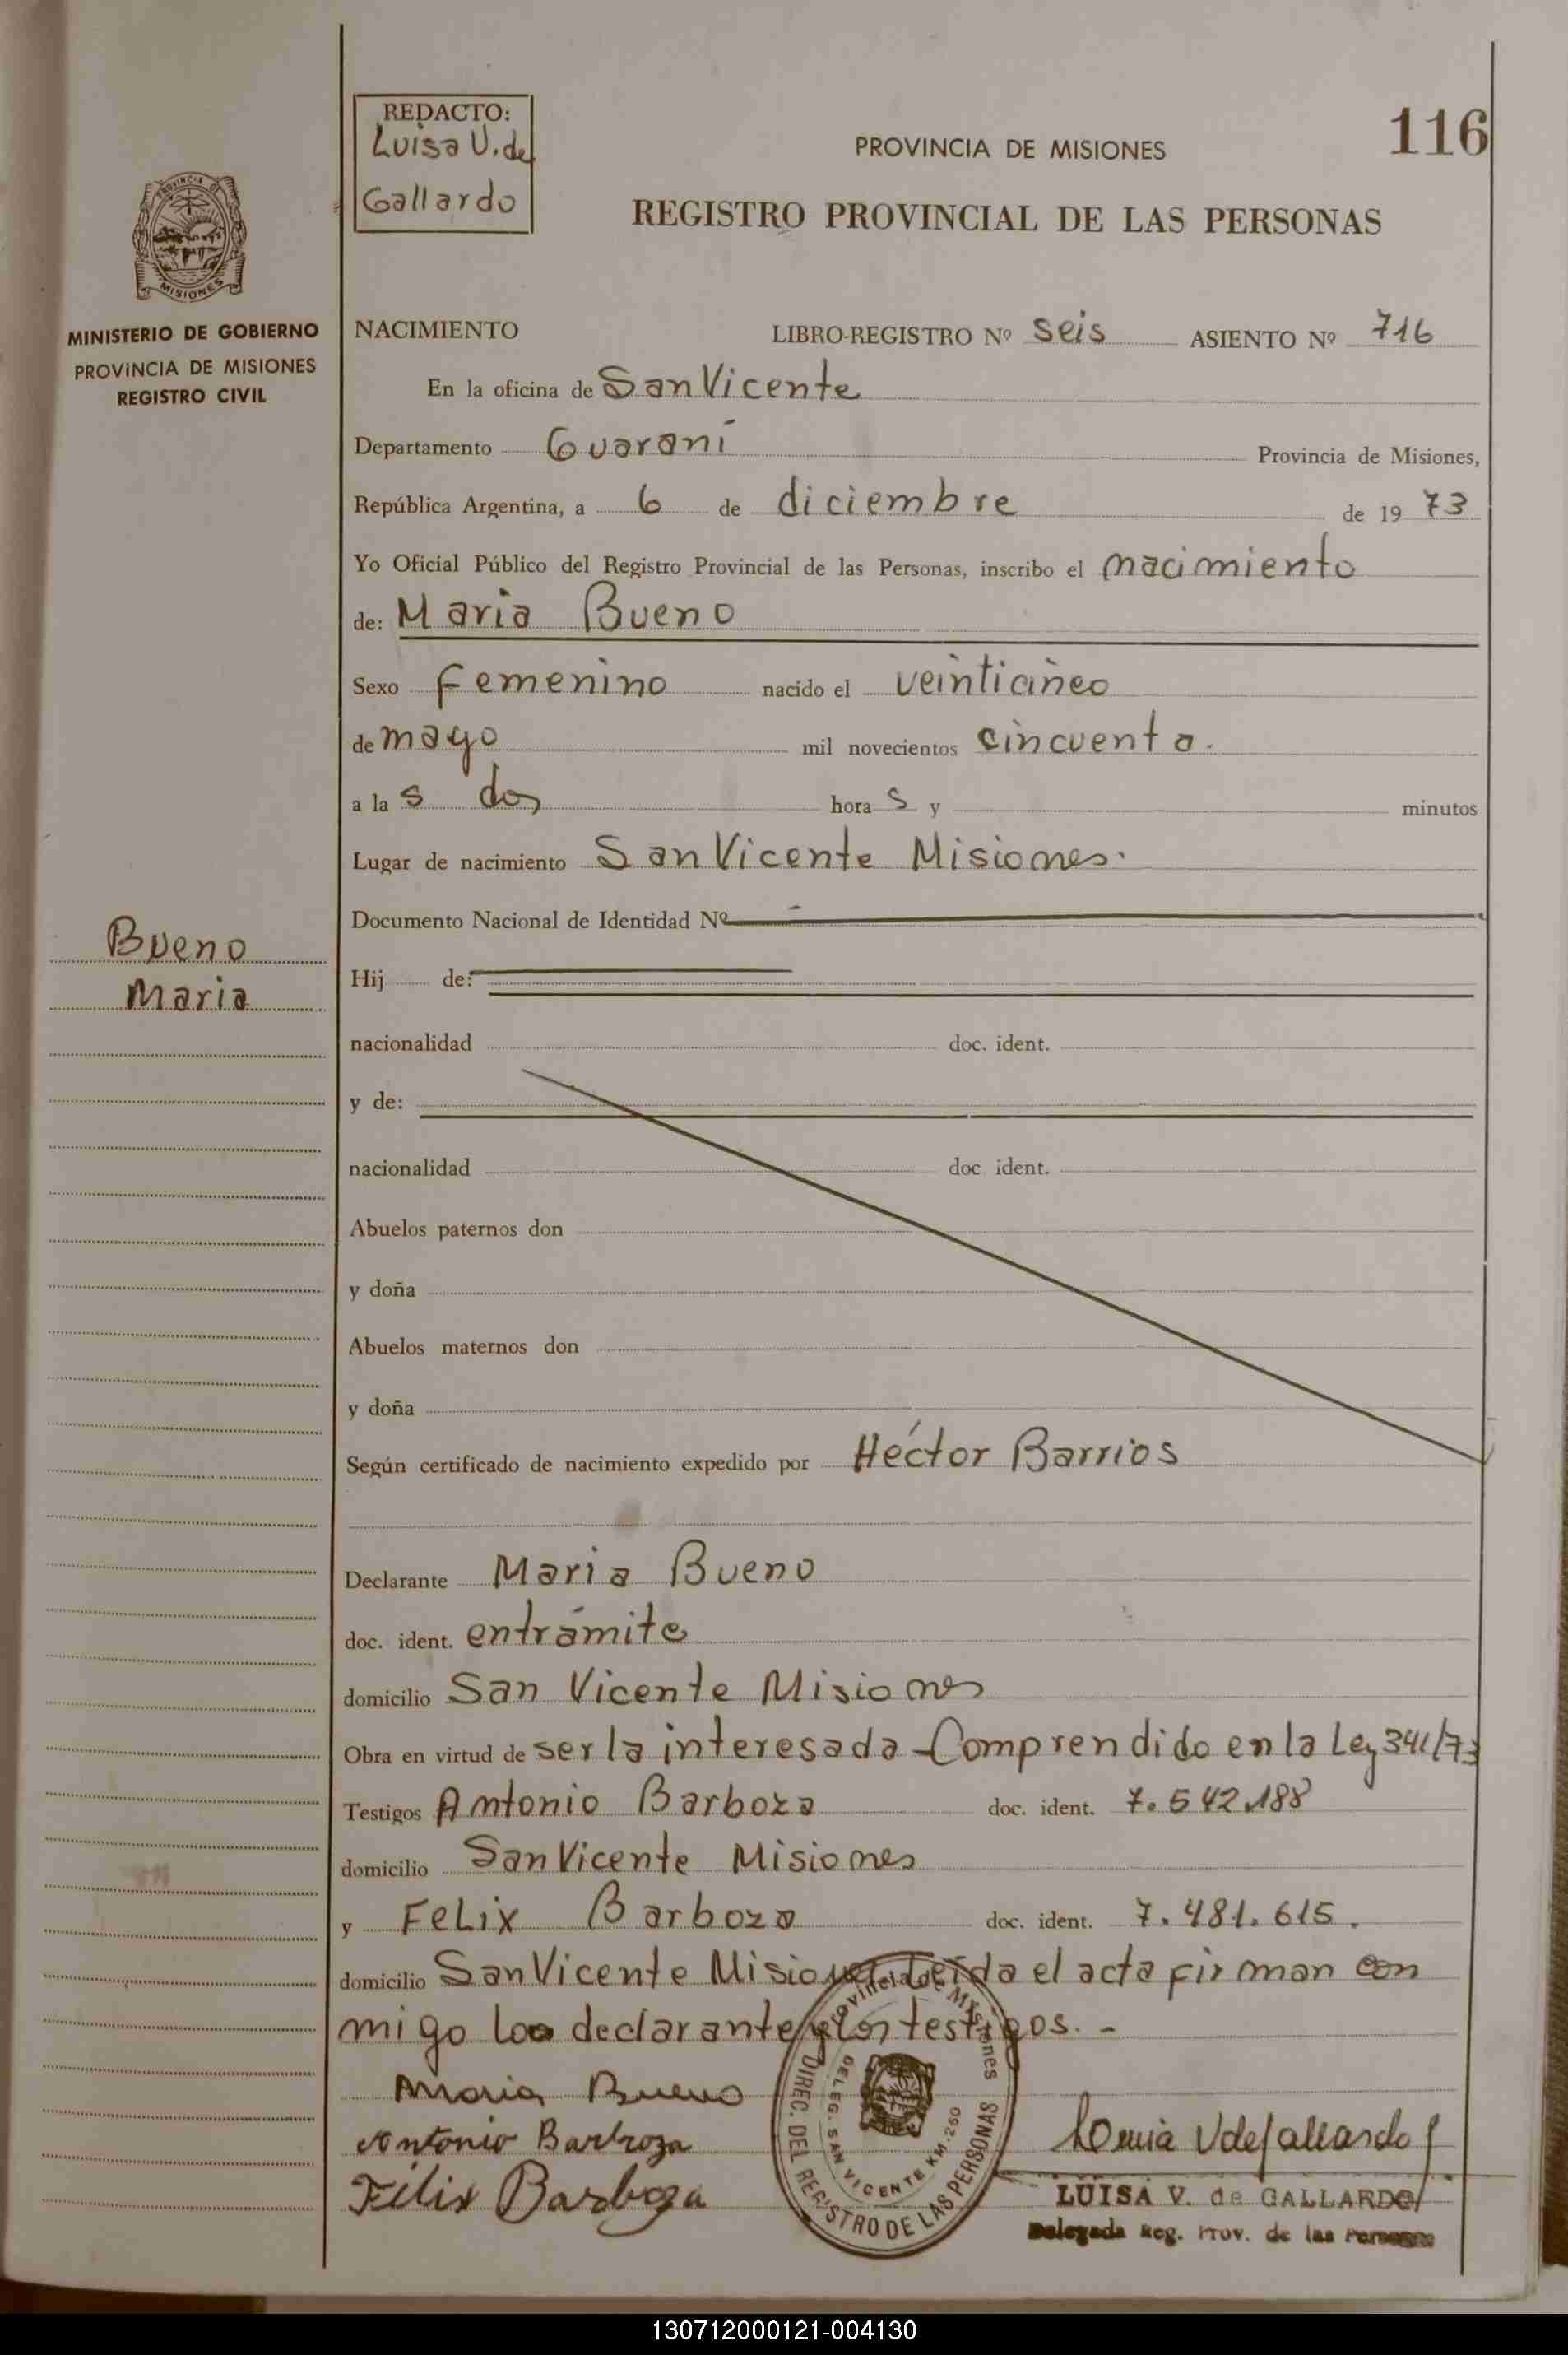 REDACTO:
Luisa V. de
Gallardo
PROVINCIA DE MISIONES
116
REGISTRO PROVINCIAL DE LAS PERSONAS
MISIONES
MINISTERIO DE GOBIERNO
PROVINCIA DE MISIONES
REGISTRO CIVIL
NACIMIENTO LIBRO-REGISTRO Nº seis ASIENTO Nº 716
En la oficina de San Vicente
Departamento Guaraní Provincia de Misiones,
República Argentina, a 6 de diciembre de 19 73
Yo Oficial Público del Registro Provincial de las Personas, inscribo el nacimiento
de: Maria Bueno
Sexo Femenino nacido el veinticinco
de mayo mil novecientos cincuenta.
a la s dos hora s y minutos
Lugar de nacimiento San Vicente Misiones.
Documento Nacional de Identidad Nº
Bueno
Maria
Hij de:
nacionalidad doc. ident.
y de:
nacionalidad doc. ident.
Abuelos paternos don
y doña
Abuelos maternos don
y doña
Según certificado de nacimiento expedido por Héctor Barrios
Declarante Maria Bueno
doc. ident. en trámite
domicilio San Vicente Misiones
Obra en virtud de ser la interesada - Comprendido en la Ley 341/73
Testigos Antonio Barboza doc. ident. 7.542.188
domicilio San Vicente Misiones
y Felix Barboza doc. ident. 7.481.615.
domicilio San Vicente Misiones Leída el acta firman con
migo los declarante y los testigos. -
Maria Bueno
Antonio Barboza
Félix Barboza
Provincia de Misiones
DIREC. DEL REGISTRO DE LAS PERSONAS
DELEG. SAN VICENTE KM. 260
Luisa V de Gallardo
LUISA V. de GALLARDO
Delegada Reg. Prov. de las Personas
130712000121-004130